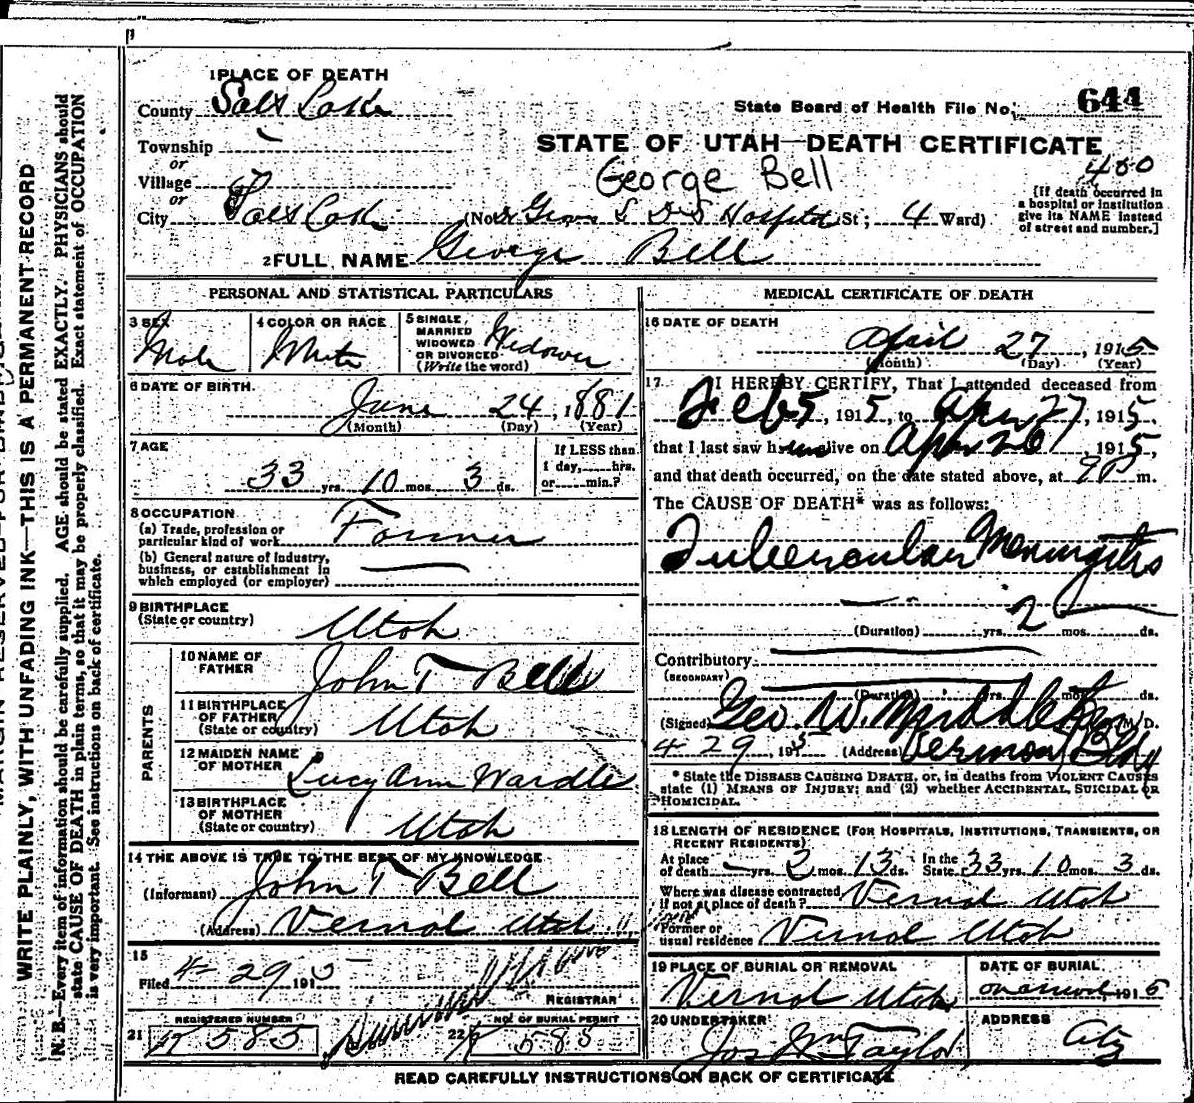 1 PLACE OF DEATH
County Salt Lake
State Board of Health File No. 644
Township
or
Village
or
City Salt Lake
STATE OF UTAH—DEATH CERTIFICATE
George Bell
400
(No. Dr Groves L D S Hospital St; 4 Ward)
[If death occurred in
a hospital or institution
give its NAME instead
of street and number.]
2 FULL NAME George Bell
PERSONAL AND STATISTICAL PARTICULARS
3 SEX
Male
4 COLOR OR RACE
White
5 SINGLE,
MARRIED
WIDOWED
OR DIVORCED
(Write the word)
Widower
6 DATE OF BIRTH.
June 24, 1881
(Month) (Day) (Year)
7 AGE
33 yrs. 10 mos. 3 ds.
If LESS than
1 day, hrs.
or min.?
8 OCCUPATION
(a) Trade, profession or
particular kind of work Farmer
(b) General nature of industry,
business, or establishment in
which employed (or employer)
9 BIRTHPLACE
(State or country)
Utah
PARENTS
10 NAME OF
FATHER
John T Bell
11 BIRTHPLACE
OF FATHER
(State or country)
Utah
12 MAIDEN NAME
OF MOTHER
Lucy Ann Wardle
13 BIRTHPLACE
OF MOTHER
(State or country)
Utah
14 THE ABOVE IS TRUE TO THE BEST OF MY KNOWLEDGE
(Informant) John T Bell
(Address) Vernal Utah
15
Filed 4-29 1915
REGISTRAR
21 REGISTERED NUMBER
585
22 NO. OF BURIAL PERMIT
585
MEDICAL CERTIFICATE OF DEATH
16 DATE OF DEATH
April 27, 1915
(Month) (Day) (Year)
17 I HEREBY CERTIFY, That I attended deceased from
Feb 5, 1915, to Apr 27, 1915,
that I last saw him alive on Apr 26 1915,
and that death occurred, on the date stated above, at 9 P m.
The CAUSE OF DEATH* was as follows:
Tubercular Meningitis
(Duration) yrs. 2 mos. ds.
Contributory
(SECONDARY)
(Duration) yrs. mos. ds.
(Signed) Geo. W. Middleton M. D.
4 29, 1915 (Address) Vermont Bldg
* State the DISEASE CAUSING DEATH, or, in deaths from VIOLENT CAUSES
state (1) MEANS OF INJURY; and (2) whether ACCIDENTAL, SUICIDAL OR
HOMICIDAL.
18 LENGTH OF RESIDENCE (FOR HOSPITALS, INSTITUTIONS, TRANSIENTS, OR
RECENT RESIDENTS)
At place
of death yrs. 2 mos. 13 ds.
In the
State 33 yrs. 10 mos. 3 ds.
Where was disease contracted
if not at place of death? Vernal Utah
Former or
usual residence Vernal Utah
19 PLACE OF BURIAL OR REMOVAL
Vernal Utah
DATE OF BURIAL
on arrival, 1915
20 UNDERTAKER
Jos Wm Taylor
ADDRESS
City
READ CAREFULLY INSTRUCTIONS ON BACK OF CERTIFICATE
WRITE PLAINLY, WITH UNFADING INK—THIS IS A PERMANENT RECORD
N. B.—Every item of information should be carefully supplied. AGE should be stated EXACTLY. PHYSICIANS should
state CAUSE OF DEATH in plain terms, so that it may be properly classified. Exact statement of OCCUPATION
is very important. See instructions on back of certificate.